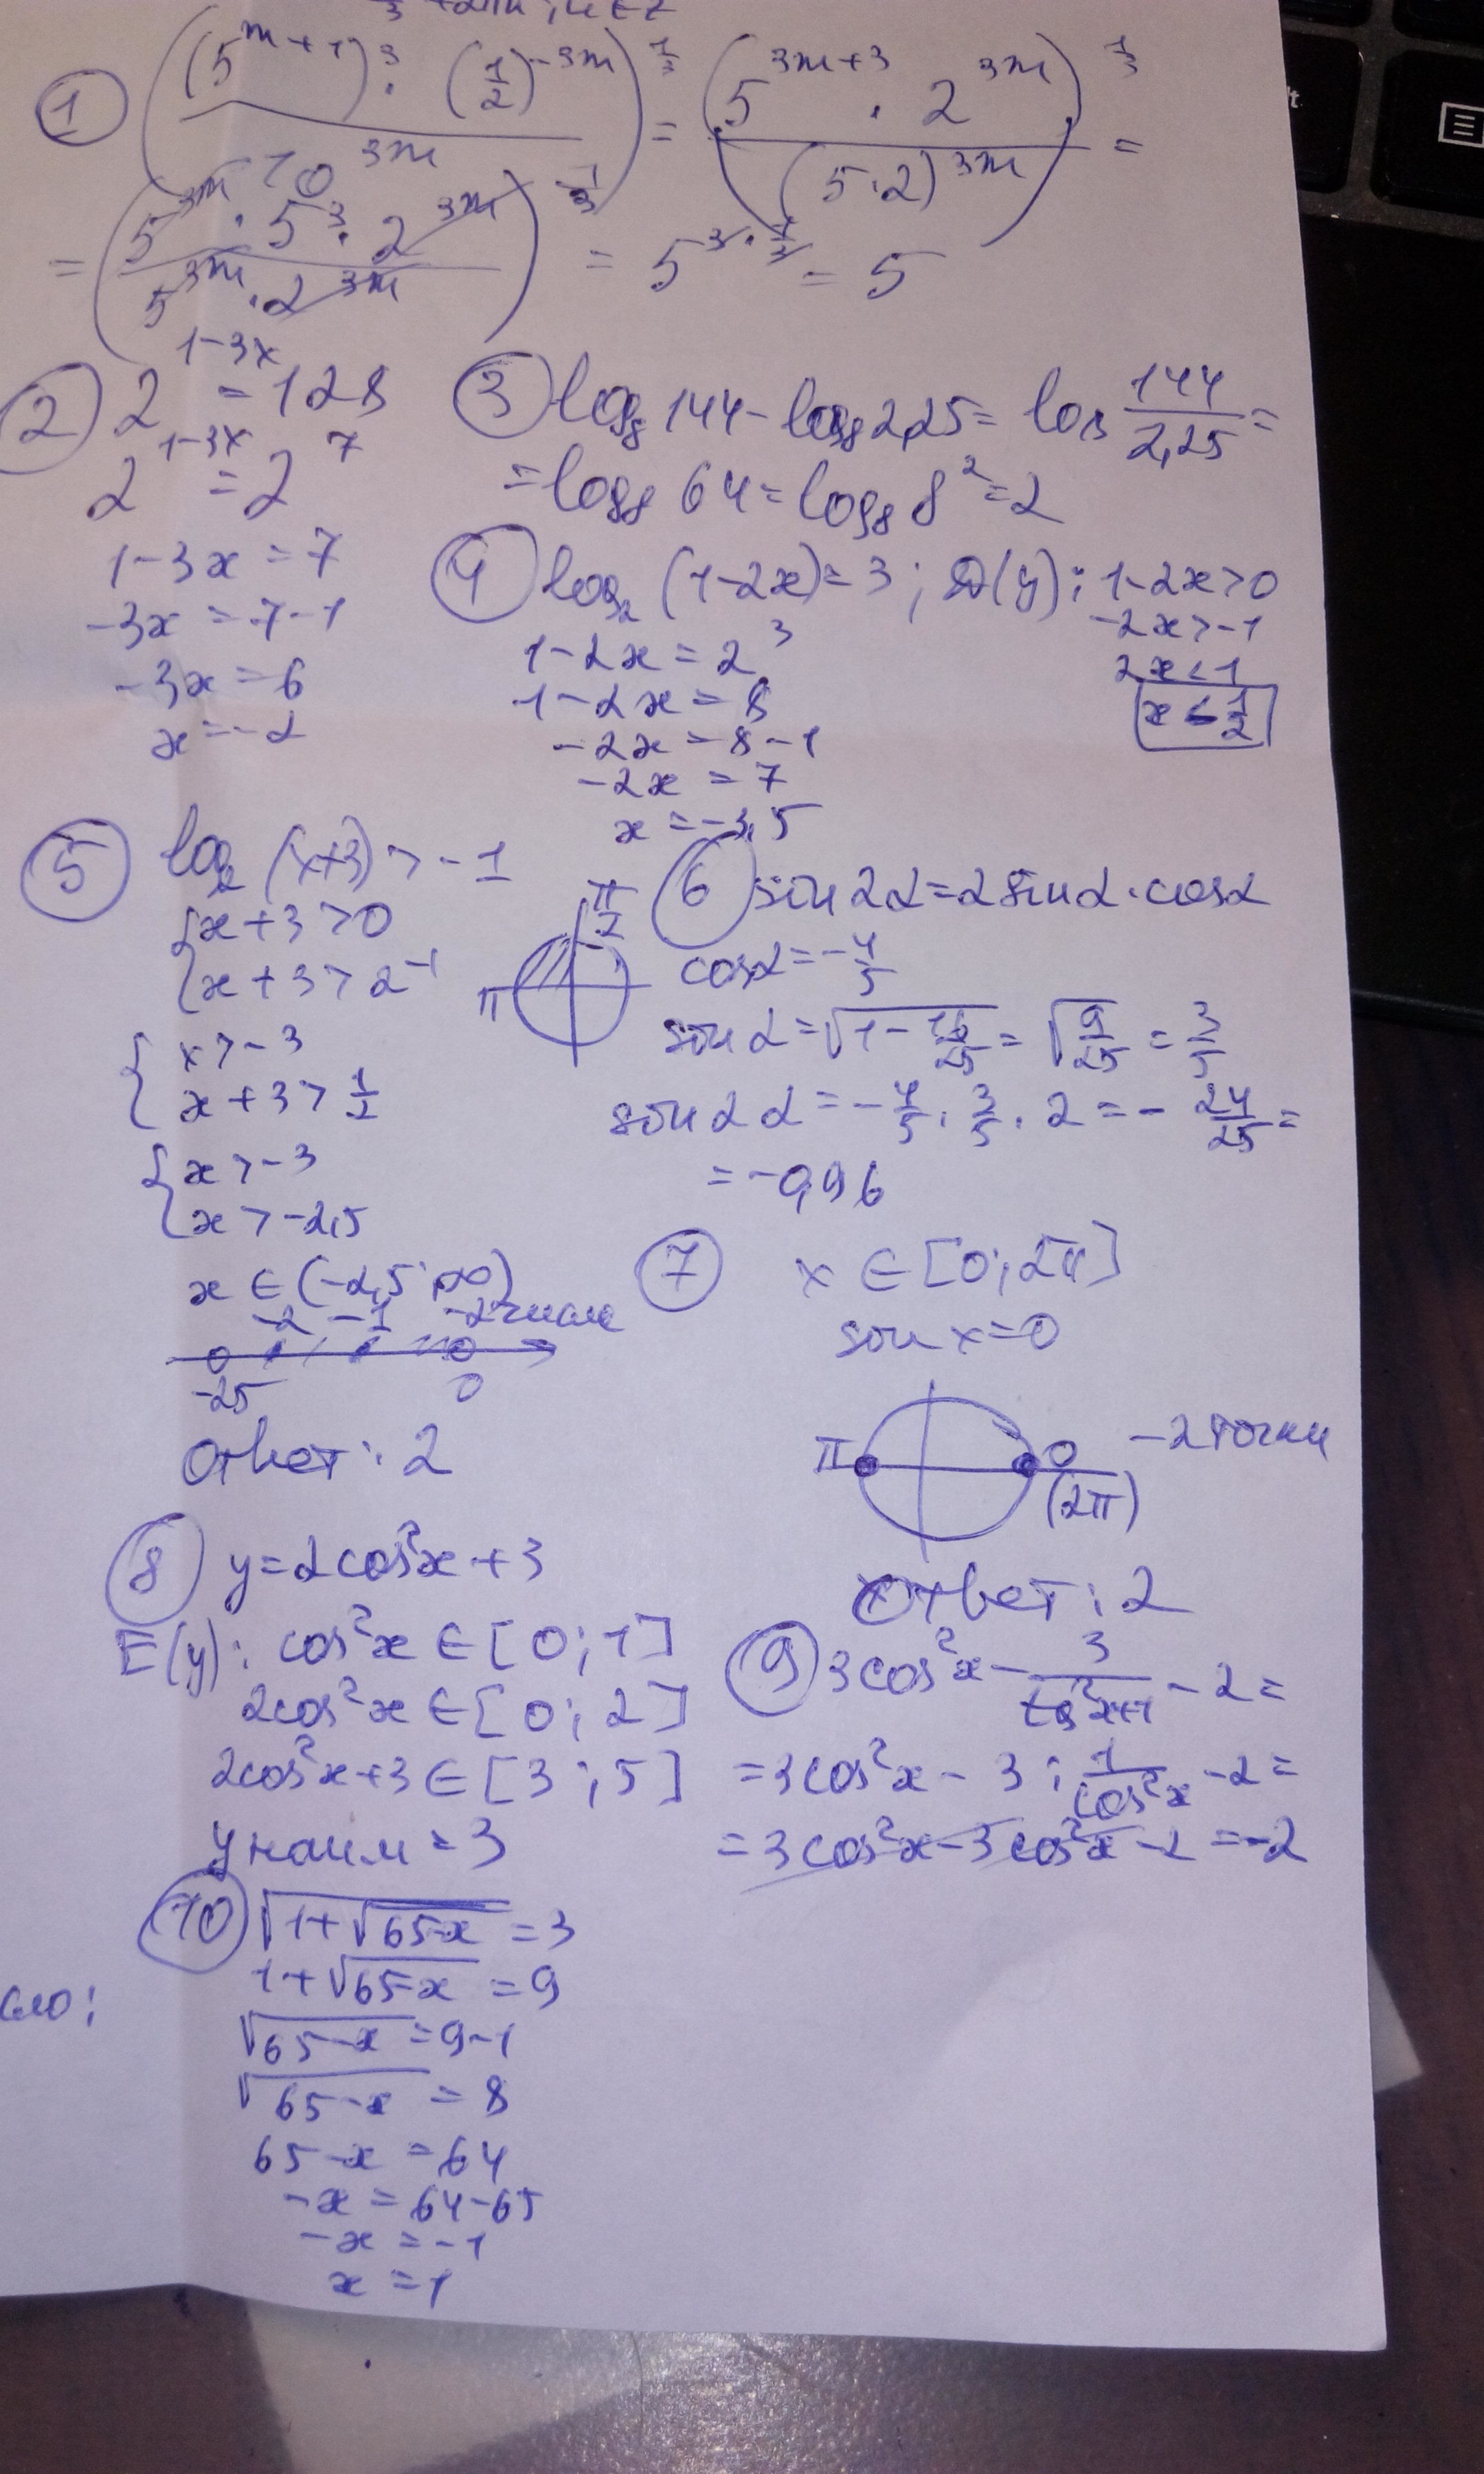 ① ((5^(m+1))^3 · (1/2)^(-3m) / 10^(3m))^(1/3) = (5^(3m+3) · 2^(3m) / (5·2)^(3m))^(1/3) =
= (5^(3m) · 5^3 · 2^(3m) / 5^(3m) · 2^(3m))^(1/3) = 5^(3·1/3) = 5
② 2^(1-3x) = 128
2^(1-3x) = 2^7
1-3x = 7
-3x = 7-1
-3x = 6
x = -2
③ log₈ 144 - log₈ 2,25 = log 144/2,25 =
= log₈ 64 = log₈ 8² = 2
④ log₂ (1-2x) = 3 ; D(y): 1-2x>0
-2x>-1
2x<1
x<1/2
1-2x = 2³
1-2x = 8
-2x = 8-1
-2x = 7
x = -3,5
⑤ log₂ (x+3) > -1
{x+3>0
{x+3>2^(-1)
{x>-3
x+3>1/2
{x>-3
x>-2,5
x∈(-2,5;∞)
-2 -1 -2
-25 0
Ответ: 2
⑥ sin2α=2sinα·cosα
π/2
π
cosα=-4/5
sinα=√(1-16/25) = √(9/25) = 3/5
sin2α = -4/5 · 3/5 · 2 = -24/25 =
= -0,96
⑦ x∈[0;2π]
sin x=0
π 0 (2π) -2 точки
Ответ: 2
⑧ y=2cos²x+3
E(y): cos²x∈[0;1]
2cos²x∈[0;2]
2cos²x+3∈[3;5]
y наим = 3
⑨ 3cos²x - 3/(tg²x+1) - 2 =
=3cos²x - 3 : 1/cos²x - 2 =
=3cos²x - 3cos²x - 2 = -2
⑩ √(1+√(65-x)) = 3
1+√(65-x) = 9
√(65-x) = 9-1
√(65-x) = 8
65-x = 64
-x = 64-65
-x = -1
x = 1